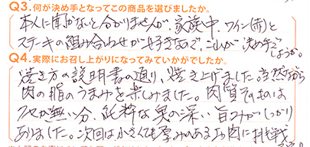 Q3.何が決め手となってこの商品を選びましたか。
本人に聞かないと分かりませんが、家族中、ワイン(赤)と
ステーキの組み合わせが大好きなので、これが決め手で
しょうか。
Q4.実際にお召し上がりになってみていかがでしたか。
焼き方の説明書の通り、焼き上げました。当然ながら
肉の脂のうまみを楽しみました。肉質そのものは
クセが無い分、純粋な奥の深い旨みがしっかり
ありました。次回は小さくても厚みのあるお肉に挑戦